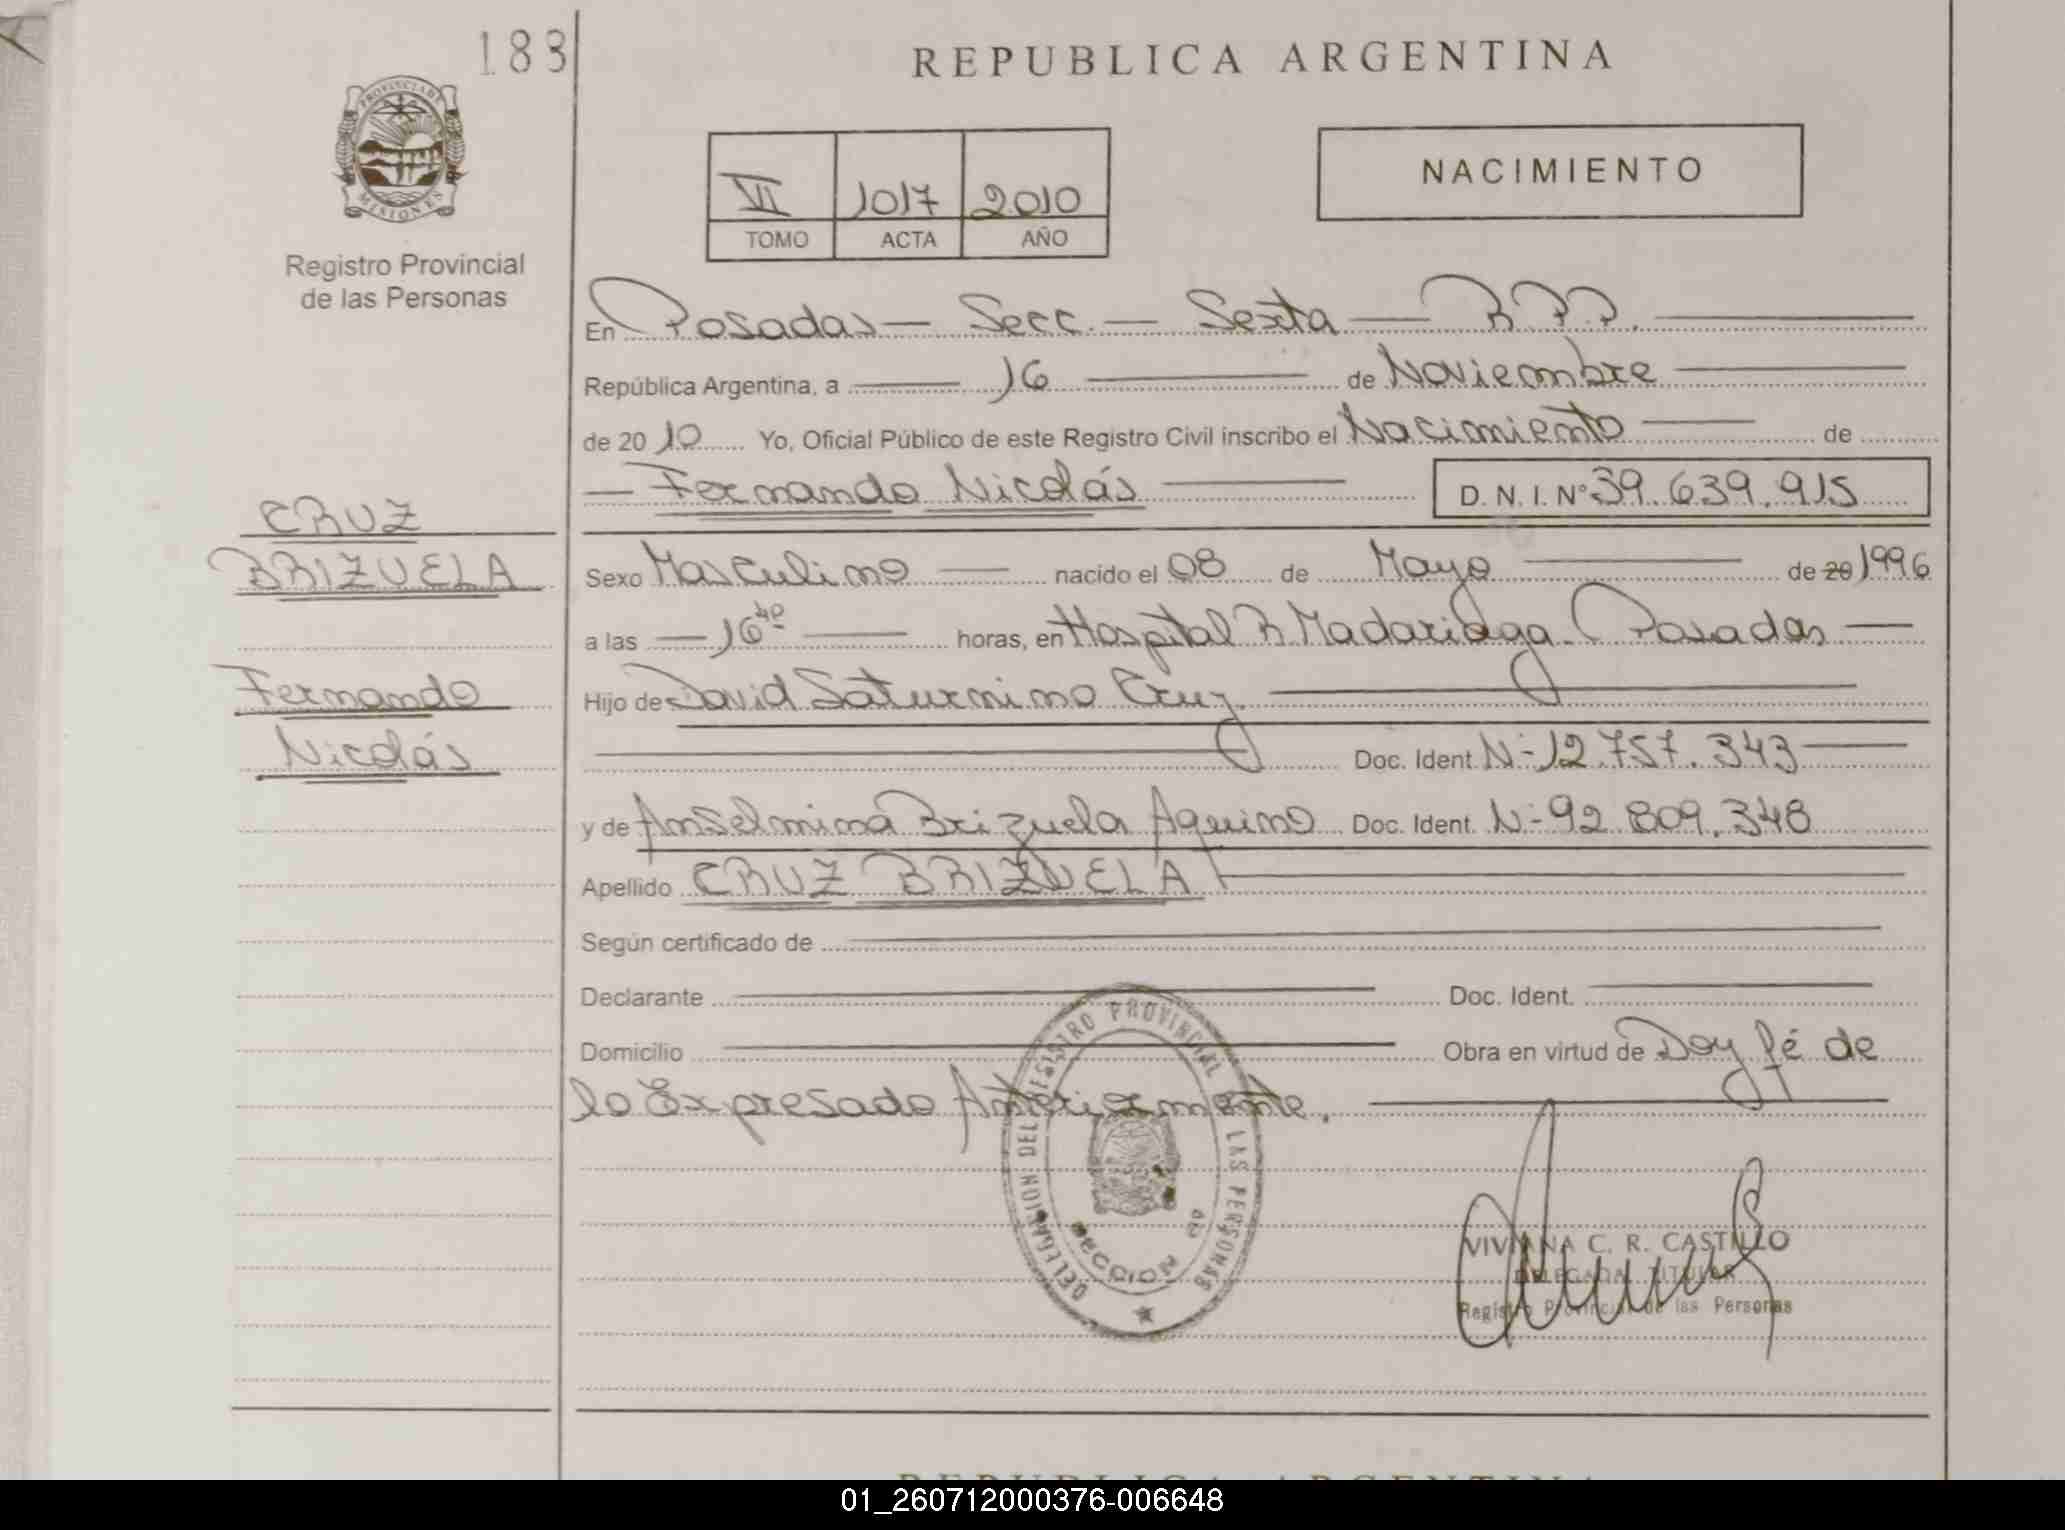 183
REPUBLICA ARGENTINA
PROVINCIA DE
MISIONES
Registro Provincial
de las Personas
NACIMIENTO
VI 1017 2010
TOMO ACTA AÑO
En Posadas — Secc. — Sexta — R.P.P.
República Argentina, a — 16 — de Noviembre
de 2010 Yo, Oficial Público de este Registro Civil inscribo el Nacimiento — de
— Fernando Nicolás — D. N. I. N° 39.639.915
CRUZ
BRIZUELA
Fernando
Nicolás
Sexo Masculino — nacido el 08 de Mayo — de 20 1996
a las — 16 40 — horas, en Hospital R. Madariaga. Posadas —
Hijo de David Saturnino Cruz.
Doc. Ident. N- 12.757.343 —
y de Anselmina Brizuela Aquino Doc. Ident. N- 92.809.348
Apellido CRUZ BRIZUELA
Según certificado de
Declarante Doc. Ident.
Domicilio Obra en virtud de Doy fé de
lo Expresado Anteriormente.
DELEGACION DEL REGISTRO PROVINCIAL DE LAS PERSONAS
SECCION 6º
VIVIANA C. R. CASTILLO
DELEGADA TITULAR
Registro Provincial de las Personas
REPUBLICA ARGENTINA
01_260712000376-006648